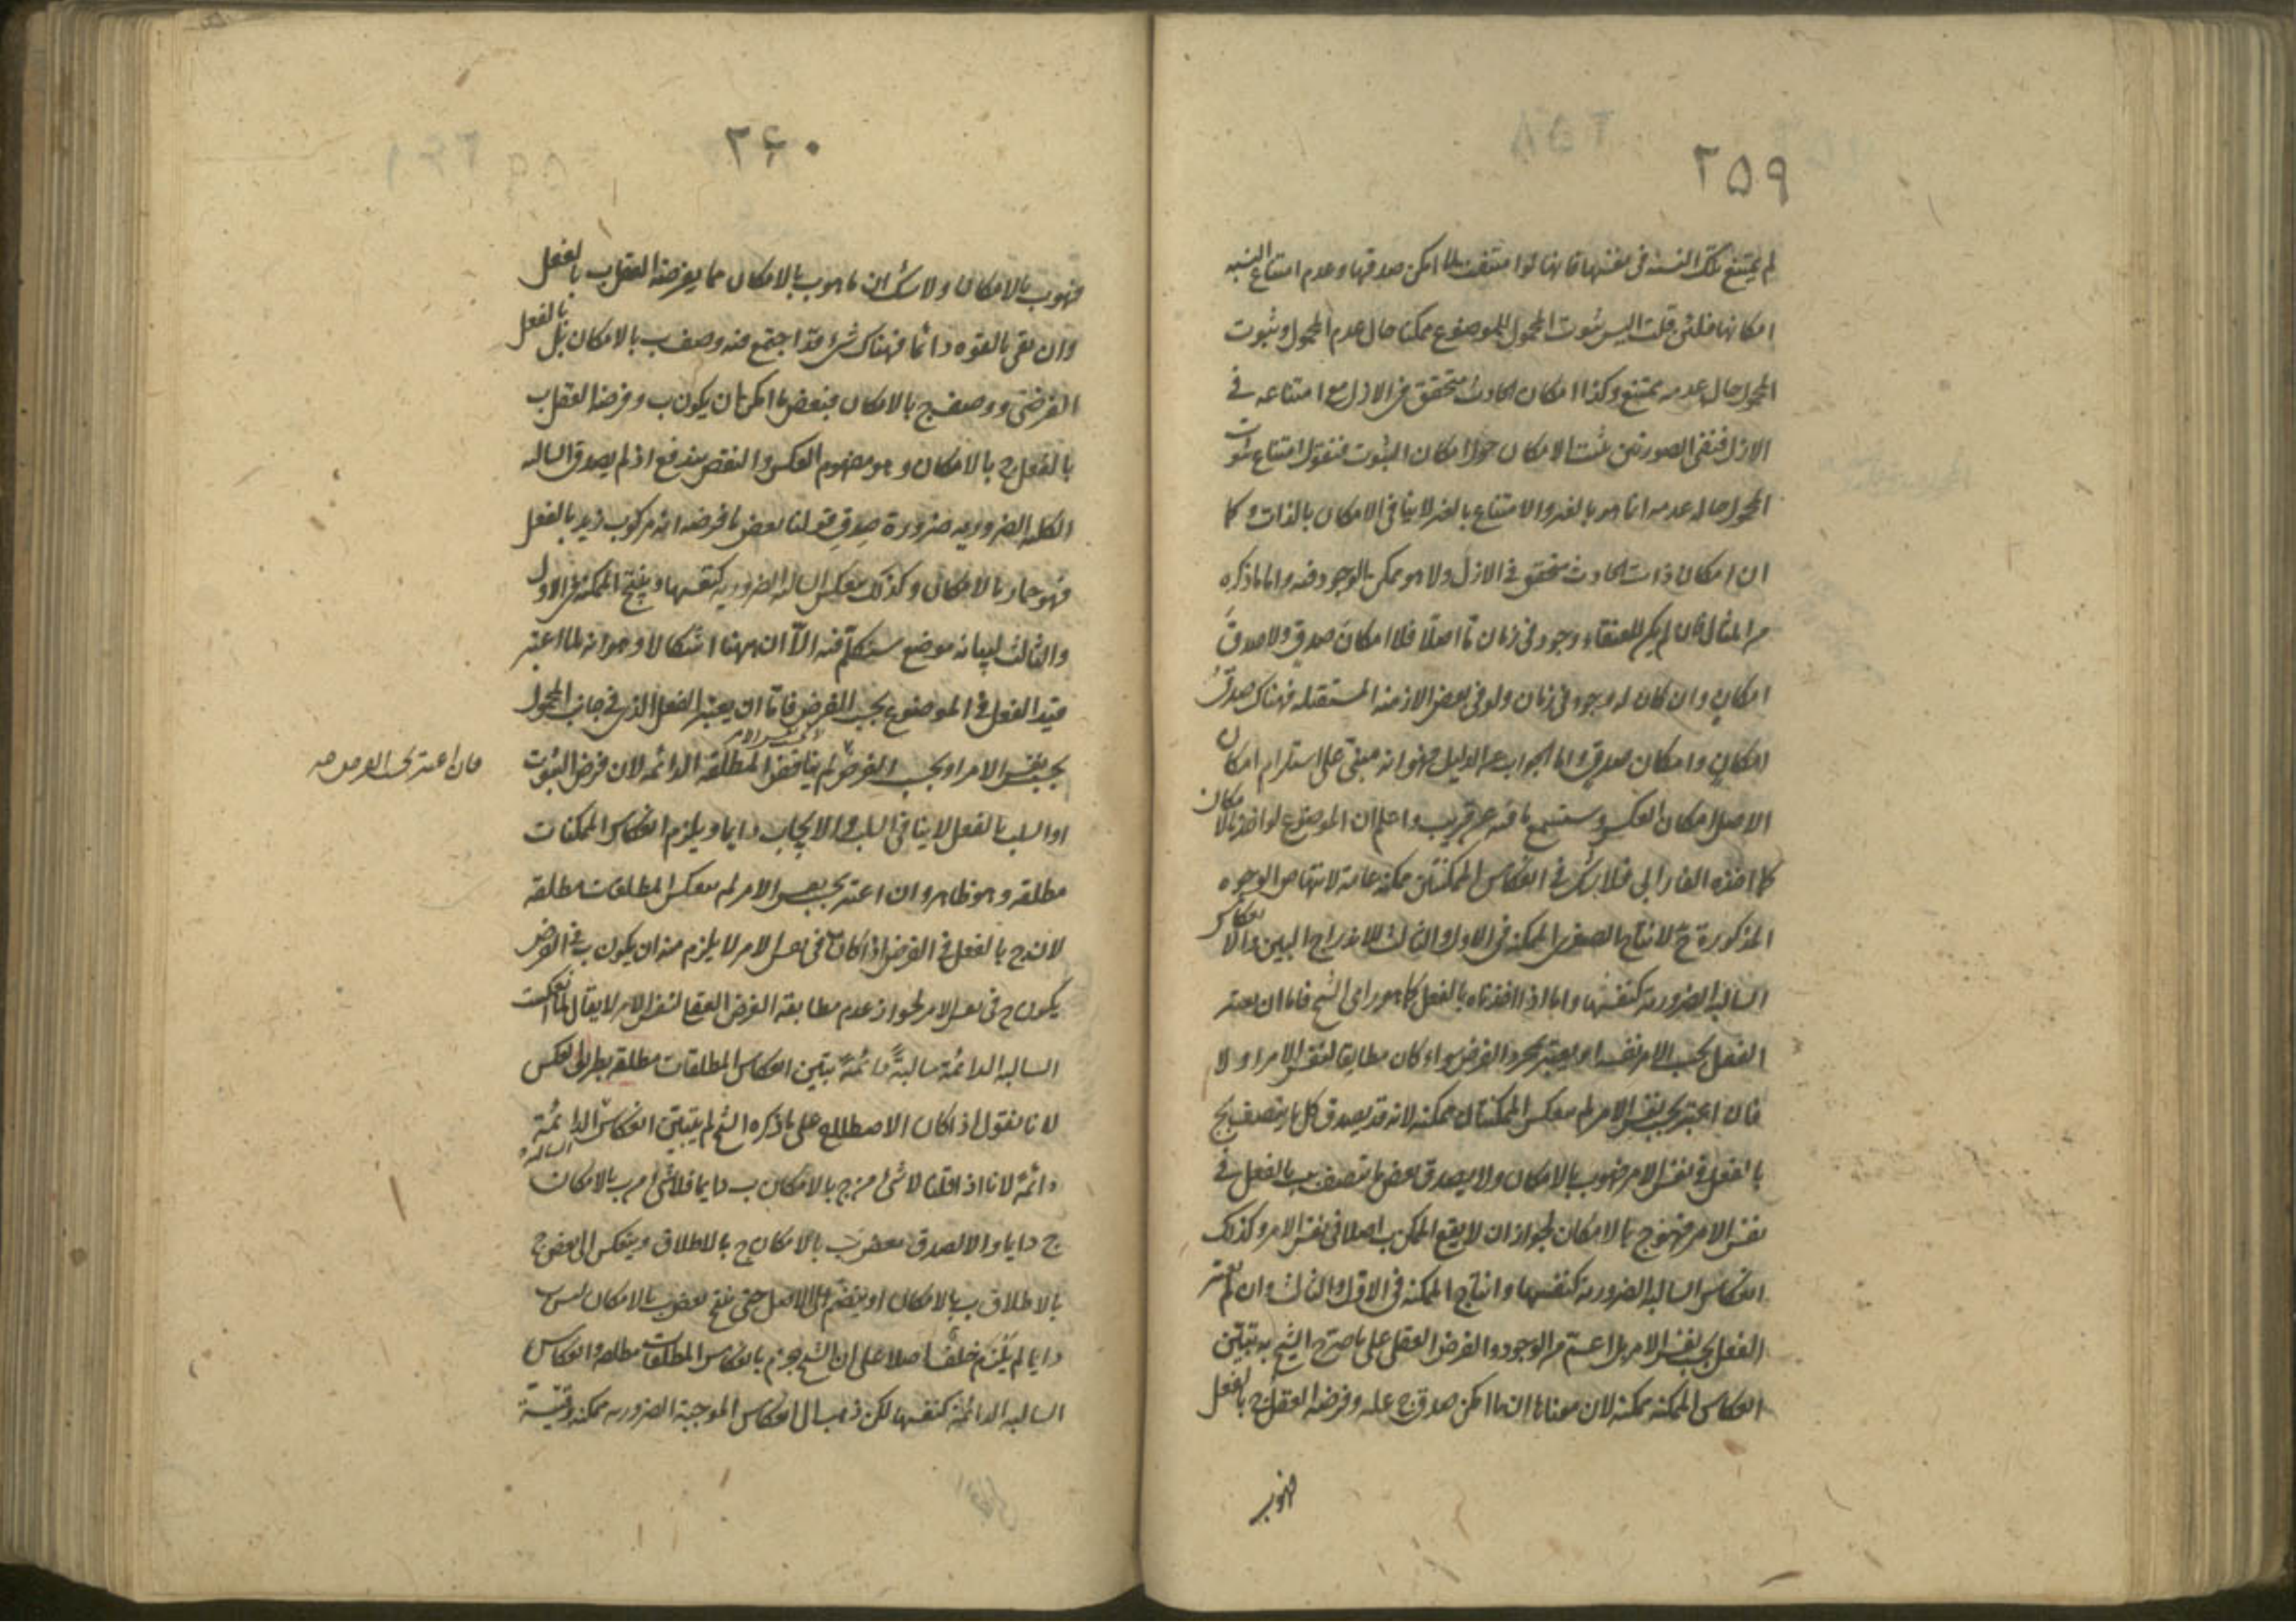 ٢٥٩
لم يمتنع تلك النسبة في نفسها فانها لو امتنعت لما امكن صدقها وعدم امتناع النسبة
امكانها فلئن قلت اليس ثبوت المحمول للموضوع ممكنا حال عدم المحمول وثبوت
المحمول حال عدمه ممتنع وكذا امكان الحادث متحقق في الازل مع امتناعه في
الازل ففي الصورتين ثبت الامكان امكان الثبوت فنقول امتناع ثبوت
المحمول حال عدمه انما هو بالغير والامتناع بالغير لا ينافي الامكان بالذات وكما
ان امكان ذات الحادث متحقق في الازل ولا هو ممكن الوجود فيه واما ما ذكره
من المثال فان لم يكن للعنقاء وجود في زمان ما اصلا فلا امكان صدق ولا صدق
امكان وان كان له وجود في زمان ولو في بعض الازمنة المستقبلة فهناك صدق
امكان وامكان صدق واما الجواب عن الدليل فهو انه مبني على استلزام امكان
الاصل امكان العكس وستسمع ما فيه عن قريب واعلم ان الموضوع لو اخذ بالامكان
كما اخذه الفارابي فلا شك في انعكاس الممكنتين ممكنة عامة لانتهاض الوجوه
المذكورة ح لانتاج الصغرى الممكنة في الاول والثالث للاندراج البين والانعكاس
السالبة الضرورية كنفسها واما اذا اخذناه بالفعل كما هو راى الشيخ فاما ان يعتبر
الفعل بحسب الامر نفسه او يعتبر مجرد الفرض سواء كان مطابقا لنفس الامر او لا
فان اعتبر بحسب نفس الامر لم ينعكس الممكنتان ممكنة لانه قد يصدق كل ما يتصف بج
بالفعل في نفس الامر فهو ب بالامكان ولا يصدق بعض ما يتصف بب بالفعل في
نفس الامر فهو ج بالامكان لجواز ان لا يقع الممكن اصلا في نفس الامر وكذلك
انعكاس السالبة الضرورية كنفسها وانتاج الممكنة في الاول والثالث وان لم يعتبر
الفعل بحسب نفس الامر بل اعم من الوجود والفرض العقلي على ما صرح الشيخ به تبين
انعكاس الممكنة ممكنة لان معناها ان ما امكن صدق ج عليه وفرضه العقل ج بالفعل
فهو ب
٢٦٠
فهو ب بالامكان ولا شك ان ما هو ب بالامكان مما يفرضه العقل ب بالفعل
وان بقي بالقوه دائما فهناك شئ قد اجتمع فيه وصف ب بالامكان بل بالفعل
الفرضي ووصف ج بالامكان فبعض ما امكن ان يكون ب وفرضه العقل ب
بالفعل ج بالامكان وهو مفهوم العكس والنقض يندفع اذ لم يصدق السالبه
الكلية الضروريه ضرورة صدق قولنا بعض ما فرضه انه مركوب زيد بالفعل
فهو حمار بالامكان وكذلك ينعكس السالبة الضرورية كنفسها وينتج الممكنة في الاول
والثالث لبيانه موضع سنتكلم فيه الا ان ههنا اشكالا وهو انه لما اعتبر
قيد الفعل في الموضوع بحسب الفرض فاما ان يعتبر الفعل الذي في جانب المحمول
بحسب نفس الامر او بحسب الفرض لم يناقض المطلقة الدائمة لان فرض الثبوت
فان اعتبر بحسب الفرض صح
او السلب بالفعل لا ينافي السلب والايجاب دايما ويلزم انعكاس الممكنات
مطلقة وهو ظاهر وان اعتبر بحسب نفس الامر لم ينعكس المطلقات مطلقة
لان ج بالفعل في الفرض اذا كان ب في نفس الامر لا يلزم منه ان يكون ب في الفرض
يكون ج في نفس الامر لجواز عدم مطابقة الفرض العقلي لنفس الامر لا يقال لما انعكست
السالبه الدائمة سالبةً دائمةً تبين انعكاس المطلقات مطلقة بطريق العكس
لانا نقول اذا كان الاصطلاح على ما ذكره الشيخ لم يتبين انعكاس السالبة الدائمة
دائمة لانا اذا قلنا لا شئ من ج بالامكان ب دايما فلا شئ من ب بالامكان
ج دايما والا لصدق بعض ب بالامكان ج بالاطلاق وينعكس الى بعض ج
بالاطلاق ب بالامكان او ينضم الى الاصل حتى ينتج بعض ب بالامكان ليس ب
دايما لم يلزم خلف اصلا على ان الشيخ جزم بانعكاس المطلقات مطلقة وانعكاس
السالبه الدائمة كنفسها لكن ذهب الى انعكاس الموجبة الضرورية ممكنة